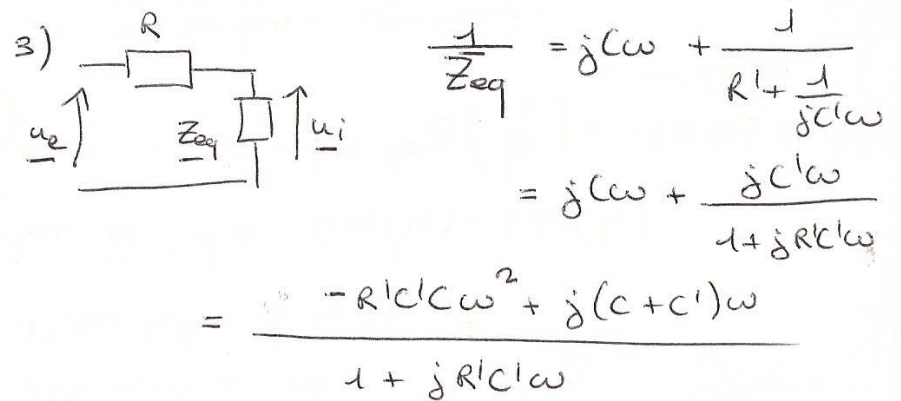 3) R
u_e Z_eq u_i
1/Z_eq = jCω + 1/(R' + 1/(jC'ω))
= jCω + jC'ω/(1 + jR'C'ω)
= (-R'C'Cω² + j(C + C')ω)/(1 + jR'C'ω)